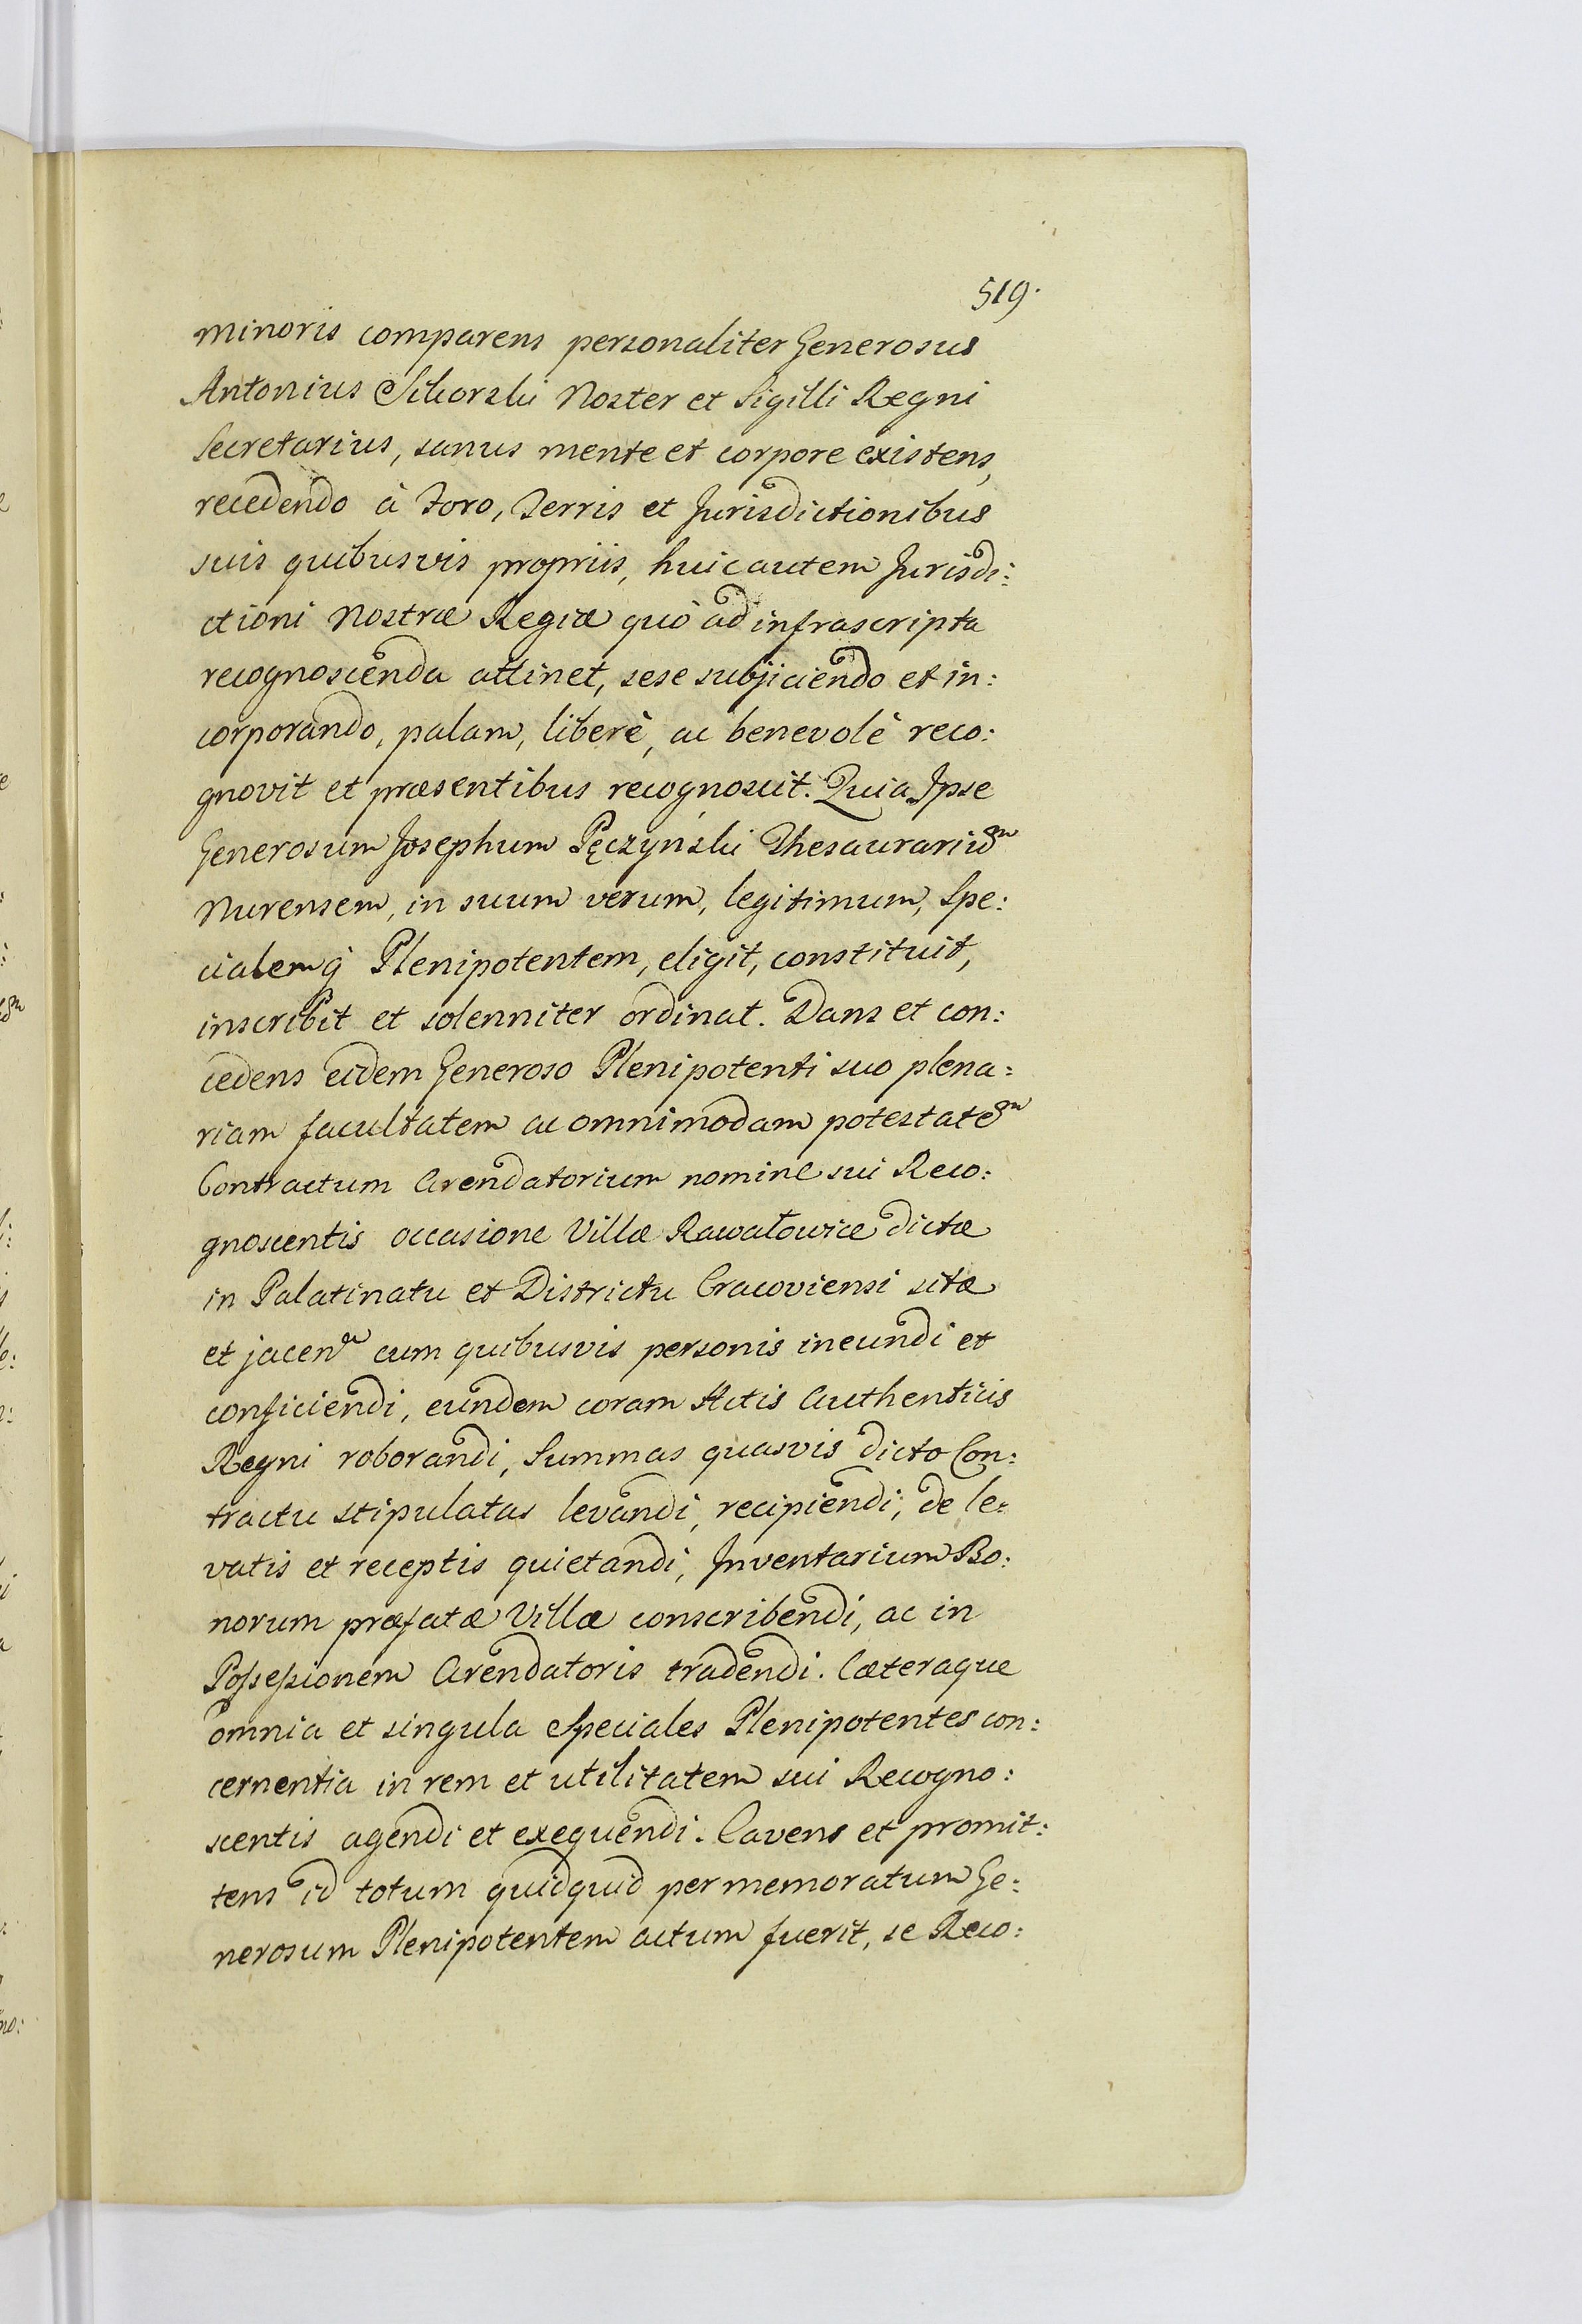 519.
minoris comparens personaliter Generosus
Antonius Sikorski Noster et Sigilli Regni
Secretarius, sanus mente et corpore existens,
recedendo à Foro, Terris et Jurisdictionibus
suis quibusvis propriis, huic autem Jurisdi:
ctioni Nostræ Regiæ quò ad infrascripta
recognoscenda attinet, sese subjiciendo et in:
corporando, palam, liberè, ac benevolè reco:
gnovit et præsentibus recognoscit. Quia Ipse
Generosum Josephum Pęczyński Thesaurariũm
Nurensem, in suum verum, legitimum, Spe:
cialemq́ Plenipotentem, eligit, constituit,
inscribit et solenniter ordinat. Dans et con:
cedens eidem Generoso Plenipotenti suo plena:
riam facultatem ac omnimodam potestatem
Contractum Arendatorium nomine sui Reco:
gnoscentis occasione Villæ Rawałowice dictæ
in Palatinatu et Districtu Cracoviensi sitæ
et jacen cum quibusvis personis ineundi et
conficiendi, eundem coram Actis Authenticis
Regni roborandi, Summas quasvis dicto Con:
tractu stipulatas levandi, recipiendi, de le:
vatis et receptis quietandi, Inventarium Bo:
norum præfatæ Villæ conscribendi, ac in
Possessionem Arendatoris tradendi. Cæteraque
omnia et singula Speciales Plenipotentes con:
cernentia in rem et utilitatem sui Recogno:
scentis agendi et exequendi. Cavens et promit:
tens id totum quidquid per memoratum Ge:
nerosum Plenipotentem actum fuerit, se Reco: